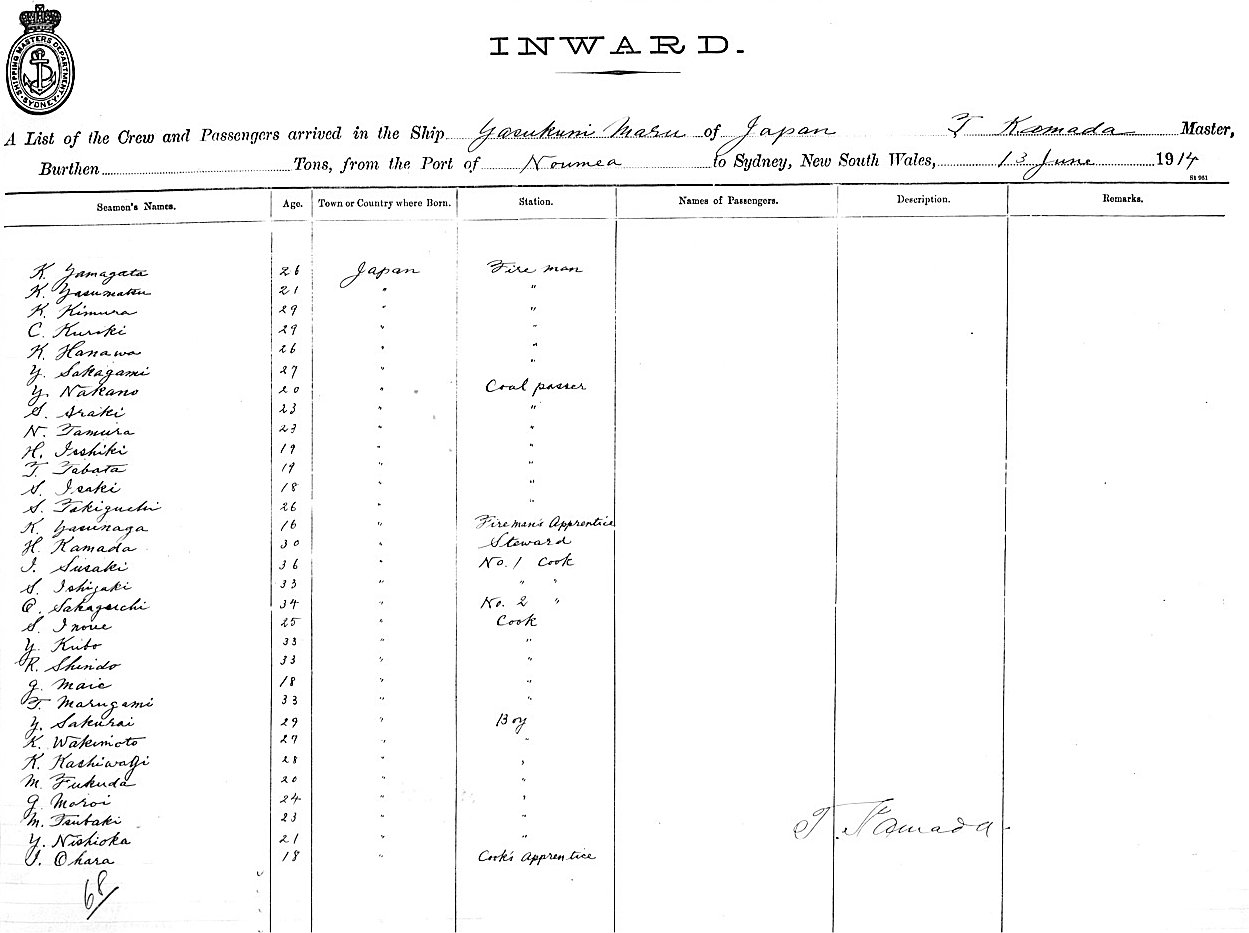 SHIPPING MASTERS DEPARTMENT
SYDNEY
INWARD.
A List of the Crew and Passengers arrived in the Ship Yasukuni Maru of Japan T Kamada Master,
Burthen Tons, from the Port of Noumea to Sydney, New South Wales, 13 June 1914
St 961
Seamen's Names. Age. Town or Country where Born. Station. Names of Passengers. Description. Remarks.
K. Yamagata 26 Japan Fire man
K. Yasumatsu 21 " "
K. Kimura 29 " "
C. Kuroki 29 " "
K. Hanawa 26 " "
Y. Sakagami 27 " "
Y. Nakano 20 " Coal passer
S. Araki 23 " "
N. Tamura 23 " "
H. Isshiki 19 " "
T. Tabata 19 " "
S. Isaki 18 " "
S. Takiguchi 26 " "
K. Yasunaga 16 " Fireman's Apprentice
H. Kamada 30 " Steward
I. Susaki 36 " No. 1 Cook
S. Ishizaki 33 " " "
O. Sakaguchi 34 " No. 2 "
S. Inoue 25 " Cook
Y. Kubo 33 " "
R. Shindo 33 " "
G. Maie 18 " "
T. Marugami 33 " "
Y. Sakurai 29 " Boy
K. Wakimoto 27 " "
K. Kashiwagi 28 " "
M. Fukuda 20 " "
G. Moroi 24 " "
M. Tsubaki 23 " "
T. Kamada
Y. Nishioka 21 " "
I. Ohara 18 " Cook's apprentice
68